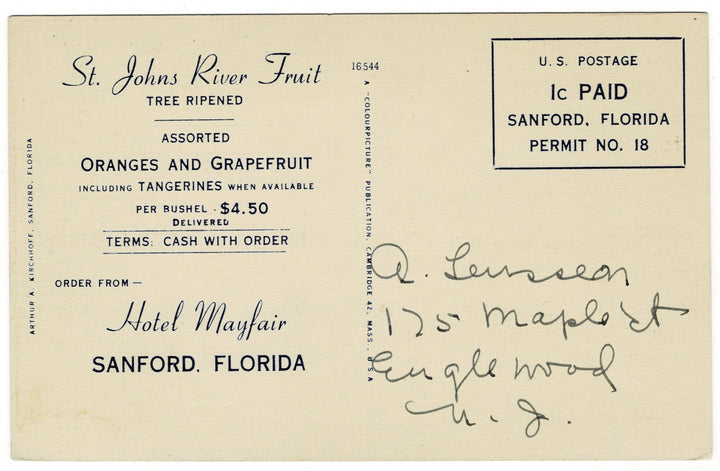 St. Johns River Fruit
TREE RIPENED
ASSORTED
ORANGES AND GRAPEFRUIT
INCLUDING TANGERINES WHEN AVAILABLE
PER BUSHEL - $4.50
DELIVERED
TERMS: CASH WITH ORDER
ORDER FROM —
Hotel Mayfair
SANFORD, FLORIDA
ARTHUR A. KIRCHHOFF, SANFORD, FLORIDA
16544
A "COLOURPICTURE" PUBLICATION, CAMBRIDGE 42, MASS., U.S.A
U. S. POSTAGE
1c PAID
SANFORD, FLORIDA
PERMIT NO. 18
A.
175 Maple St
Englewood
N. J.